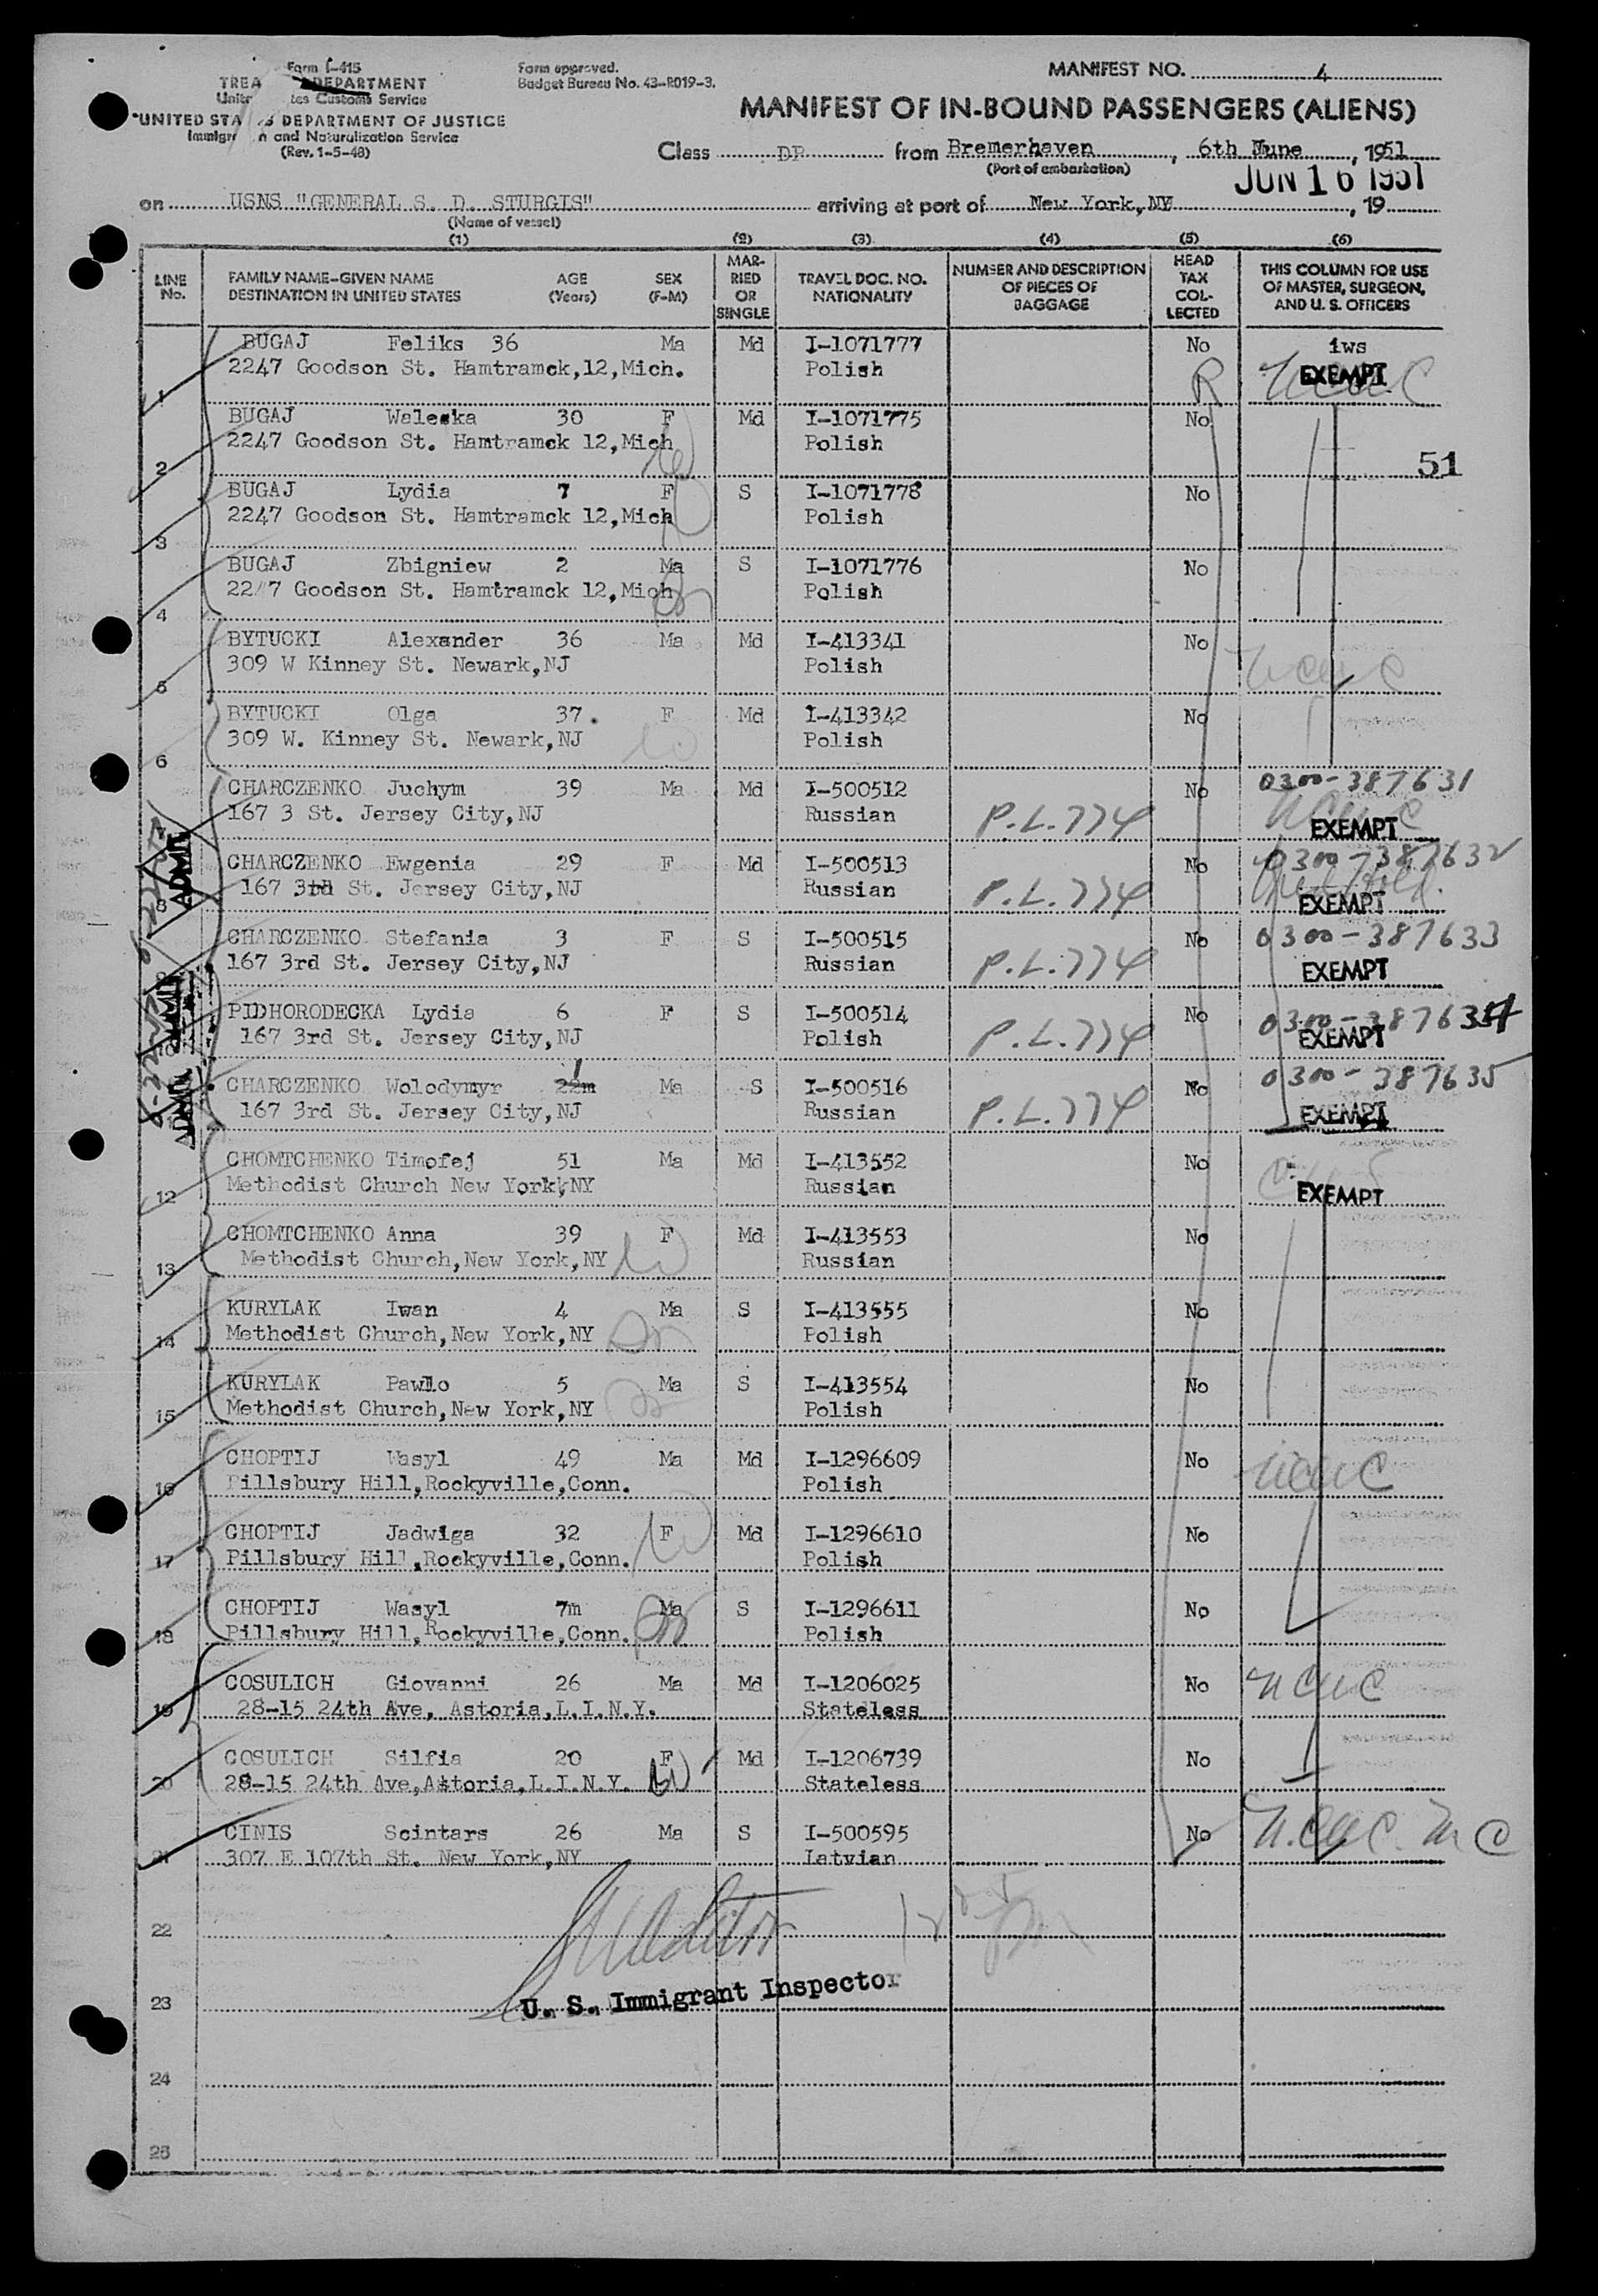 Form I-415
TREA DEPARTMENT
Unit tes Customs Service
UNITED STA S DEPARTMENT OF JUSTICE
Immigr n and Naturalization Service
(Rev. 1-5-48)
Form approved.
Budget Bureau No. 43-R019-3.
MANIFEST NO. 4
MANIFEST OF IN-BOUND PASSENGERS (ALIENS)
Class DP from Bremerhaven, 6th June, 1951
(Port of embarkation)
JUN 16 1951
on USNS "GENERAL S. D. STURGIS" arriving at port of New York, NY, 19
(Name of vessel)
(1) (2) (3) (4) (5) (6)
LINE No. FAMILY NAME-GIVEN NAME DESTINATION IN UNITED STATES AGE (Years) SEX (F-M) MARRIED OR SINGLE TRAVEL DOC. NO. NATIONALITY NUMBER AND DESCRIPTION OF PIECES OF BAGGAGE HEAD TAX COLLECTED THIS COLUMN FOR USE OF MASTER, SURGEON, AND U. S. OFFICERS
BUGAJ Feliks 36 Ma Md I-1071777 No iws
1 2247 Goodson St. Hamtramck,12,Mich. Polish R EXEMPT
BUGAJ Waleska 30 F Md I-1071775 No
2 2247 Goodson St. Hamtramck 12,Mich Polish 51
BUGAJ Lydia 7 F S I-1071778 No
3 2247 Goodson St. Hamtramck 12,Mich Polish
BUGAJ Zbigniew 2 Ma S I-1071776 No
4 22/7 Goodson St. Hamtramck 12,Mich Polish
BYTUCKI Alexander 36 Ma Md I-413341 No
5 309 W Kinney St. Newark,NJ Polish
BYTUCKI Olga 37. F Md I-413342 No
6 309 W. Kinney St. Newark,NJ Polish
CHARCZENKO Juchym 39 Ma Md I-500512 No 0300-387631
167 3 St. Jersey City,NJ Russian P.L.774 EXEMPT
CHARCZENKO Ewgenia 29 F Md I-500513 No 0300-387632
8 167 3rd St. Jersey City,NJ Russian P.L.774 EXEMPT
ADMIT
CHARCZENKO Stefania 3 F S I-500515 No 0300-387633
9 167 3rd St. Jersey City,NJ Russian P.L.774 EXEMPT
PIDHORODECKA Lydia 6 F S I-500514 No 0300-387634
10 167 3rd St. Jersey City,NJ Polish P.L.774 EXEMPT
ADMIT
CHARCZENKO Wolodymyr 22m 1 Ma S I-500516 No 0300-387635
167 3rd St. Jersey City,NJ Russian P.L.774 EXEMPT
ADMIT
CHOMTCHENKO Timofej 51 Ma Md I-413552 No
12 Methodist Church New York,NY Russian EXEMPT
CHOMTCHENKO Anna 39 F Md I-413553 No
13 Methodist Church,New York,NY Russian
KURYLAK Iwan 4 Ma S I-413555 No
14 Methodist Church,New York,NY Polish
KURYLAK Pawlo 5 Ma S I-413554 No
15 Methodist Church,New York,NY Polish
CHOPTIJ Wasyl 49 Ma Md I-1296609 No
16 Pillsbury Hill,Rockyville,Conn. Polish
CHOPTIJ Jadwiga 32 F Md I-1296610 No
17 Pillsbury Hill,Rockyville,Conn. Polish
CHOPTIJ Wasyl 7m Ma S I-1296611 No
18 Pillsbury Hill,Rockyville,Conn. Polish
COSULICH Giovanni 26 Ma Md I-1206025 No
19 28-15 24th Ave, Astoria,L.I.N.Y. Stateless
COSULICH Silfia 20 F Md I-1206739 No
20 28-15 24th Ave,Astoria,L.I.N.Y. Stateless
CINIS Scintars 26 Ma S I-500595 No
21 307 E 107th St. New York,NY Latvian
22
23 U. S. Immigrant Inspector
24
25